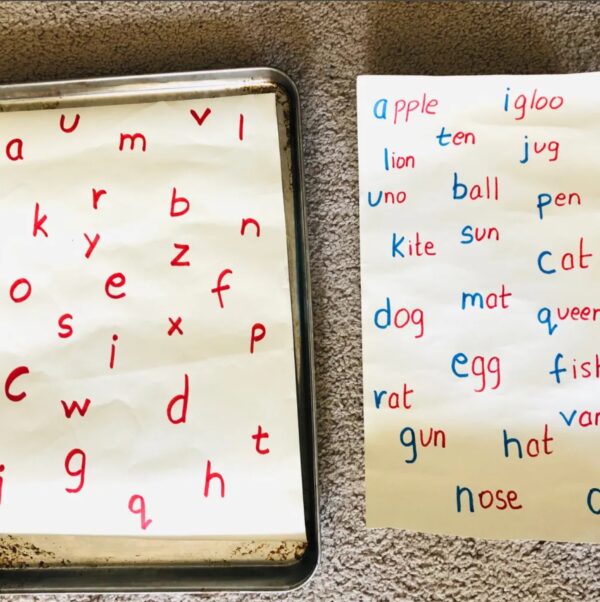 a u m v l
k r b n
y z
o e f
s i x p
c w d
g h t
q
apple igloo
ten jug
lion
uno ball pen
kite sun cat
dog mat
egg
rat
gun hat
nose